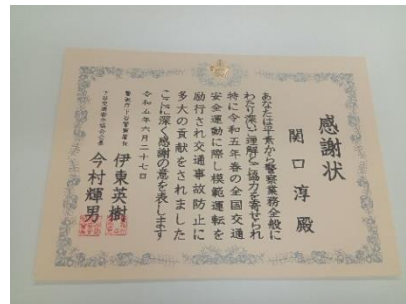 感謝状
関口淳殿
あなたは平素から警察業務全般に
わたり深い理解とご協力を寄せられ
特に令和五年春の全国交通
安全運動に際し模範運転を
励行され交通事故防止に
多大の貢献をされました
ここに深く感謝の意を表します
令和五年六月二十七日
伊東英樹
今村輝男